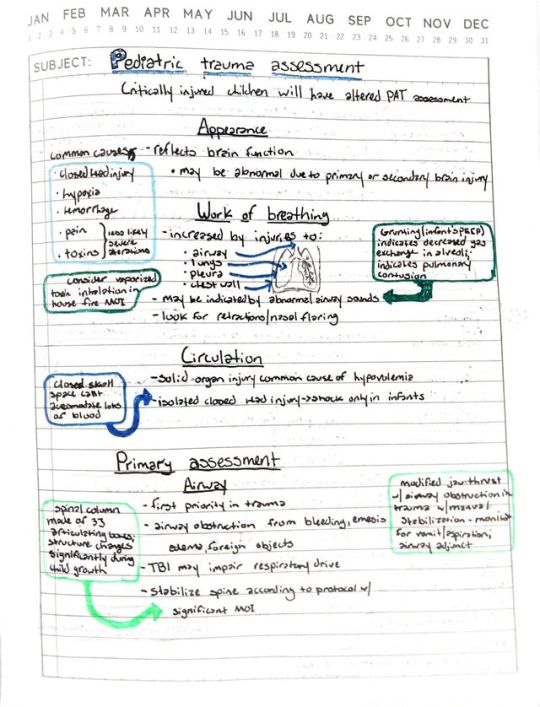 JAN FEB MAR APR MAY JUN JUL AUG SEP OCT NOV DEC
1 2 3 4 5 6 7 8 9 10 11 12 13 14 15 16 17 18 19 20 21 22 23 24 25 26 27 28 29 30 31
SUBJECT: Pediatric trauma assessment
Critically injured children will have altered PAT assessment
Appearance
common causes
· closed head injury
· hypoxia
· hemorrhage
· pain
· toxins
less likely
severe
alterations
- reflects brain function
• may be abnormal due to primary or secondary brain injury
consider vaporized
toxin inhalation in
house fire MOI
Work of breathing
- increased by injuries to:
· airway
· lungs
· pleura
· chest wall
- may be indicated by abnormal airway sounds
- look for retractions/nasal flaring
Grunting (infant's PEEP)
indicates decreased gas
exchange in alveoli;
indicates pulmonary
contusion
Circulation
closed skull
space can't
accomodate lots
of blood
- solid-organ injury common cause of hypovolemia
- isolated closed head injury → shock only in infants
Primary assessment
Airway
spinal column
made of 33
articulating bones;
structure changes
significantly during
child growth
- first priority in trauma
- airway obstruction from bleeding, emesis
edema, foreign objects
- TBI may impair respiratory drive
- stabilize spine according to protocol w/
significant MOI
modified jaw-thrust
w/ airway obstruction in
trauma w/ manual
stabilization - monitor
for vomit/aspiration;
airway adjunct